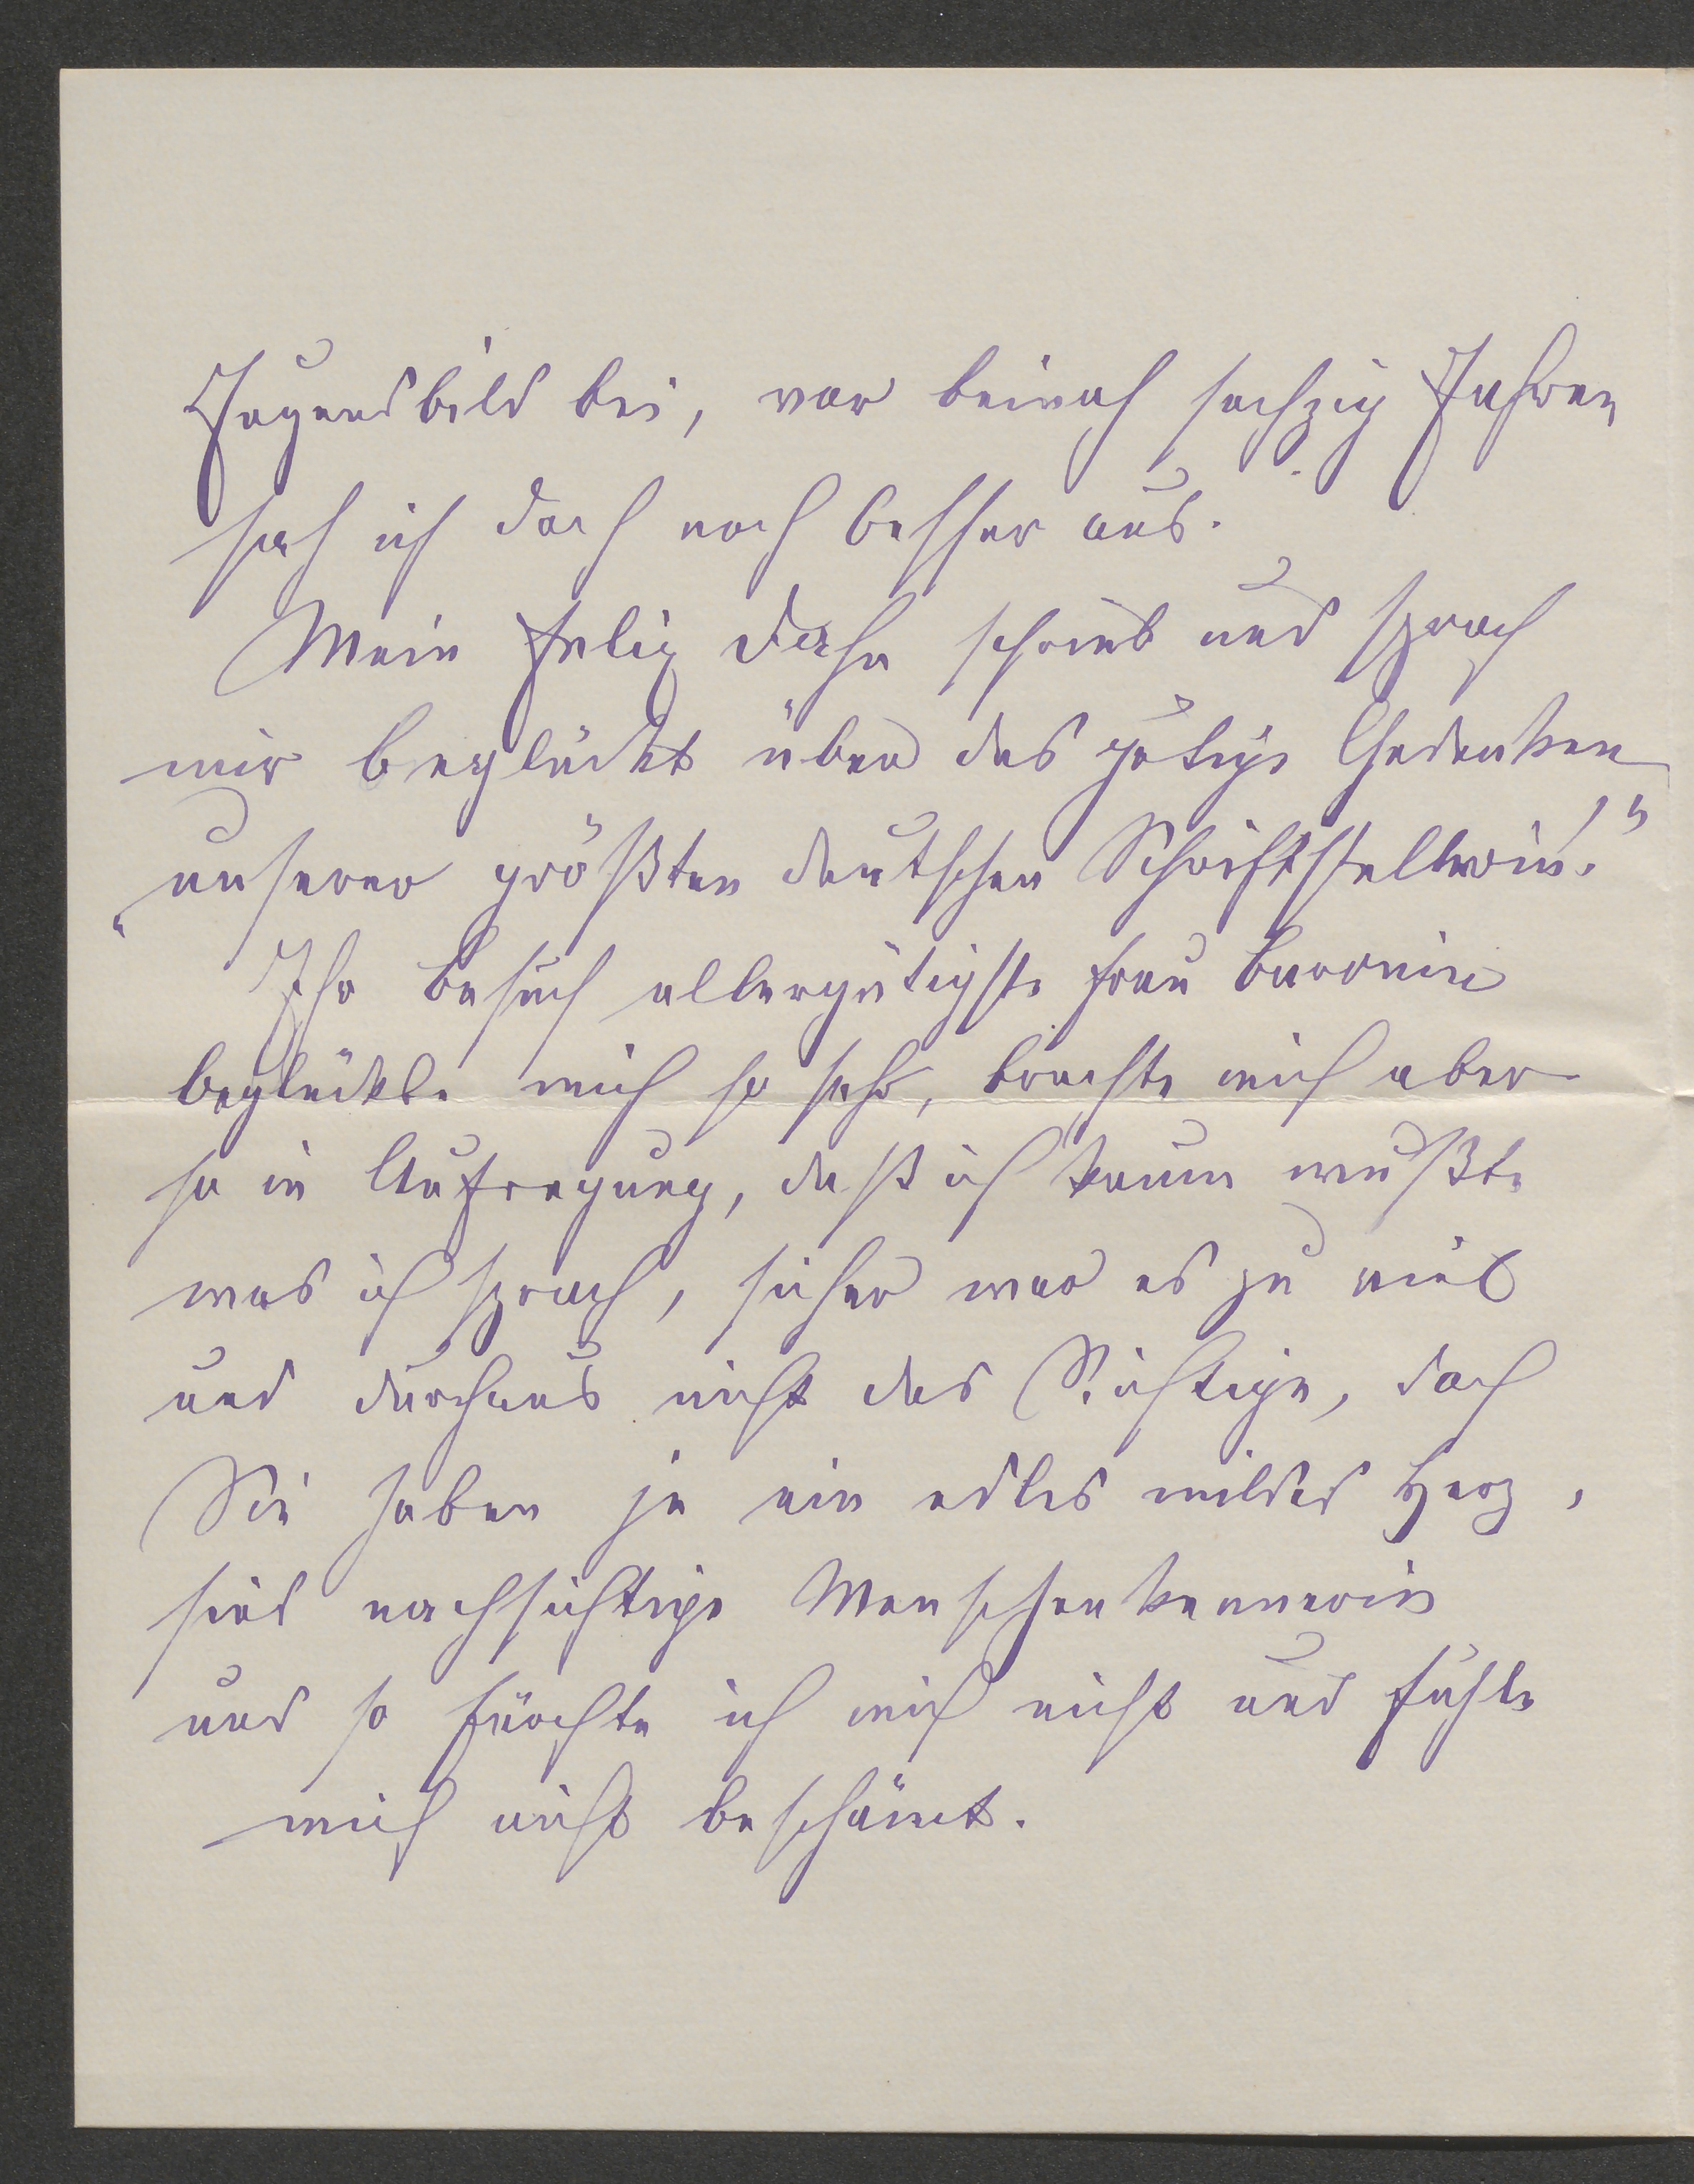 Jugendbild bei, vor beinah sechzig Jahren
sah ich doch noch besser aus.
Mein Felix Dahn schrieb und sprach
mir beglückt über das gütige Gedenken
„unserer größten deutschen Schriftstellerin!“
Ihr Besuch allergütigste Frau Baronin
beglückte mich so sehr, brachte mich aber
so in Aufregung, daß ich kaum wußte
was ich sprach, sicher war es zu viel
und durchaus nicht das Richtige, doch
Sie haben ja ein edles mildes Herz,
sind nachsichtige Menschenkennerin
und so fürchte ich mich nicht und fühle
mich nicht beschämt.